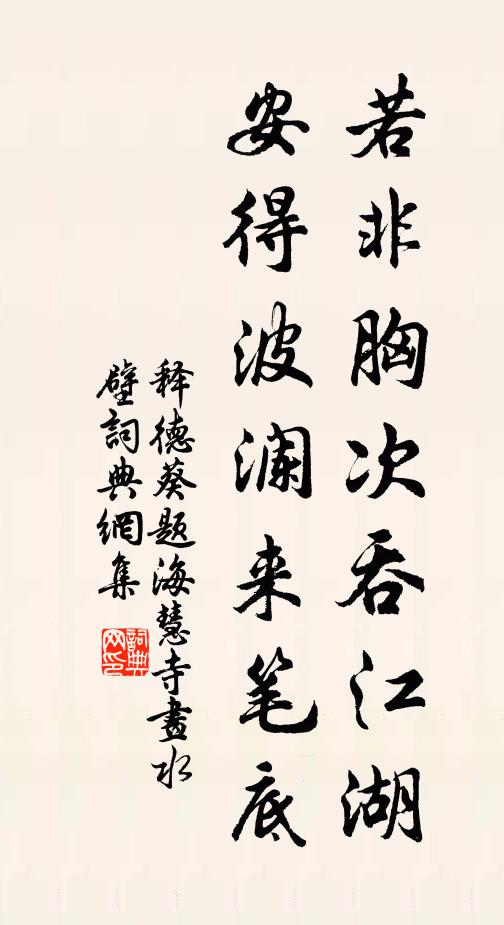 若非胸次吞江湖
安得波澜来笔底
释德葵题海慧寺畫水
壁詞典網集
詞典网印